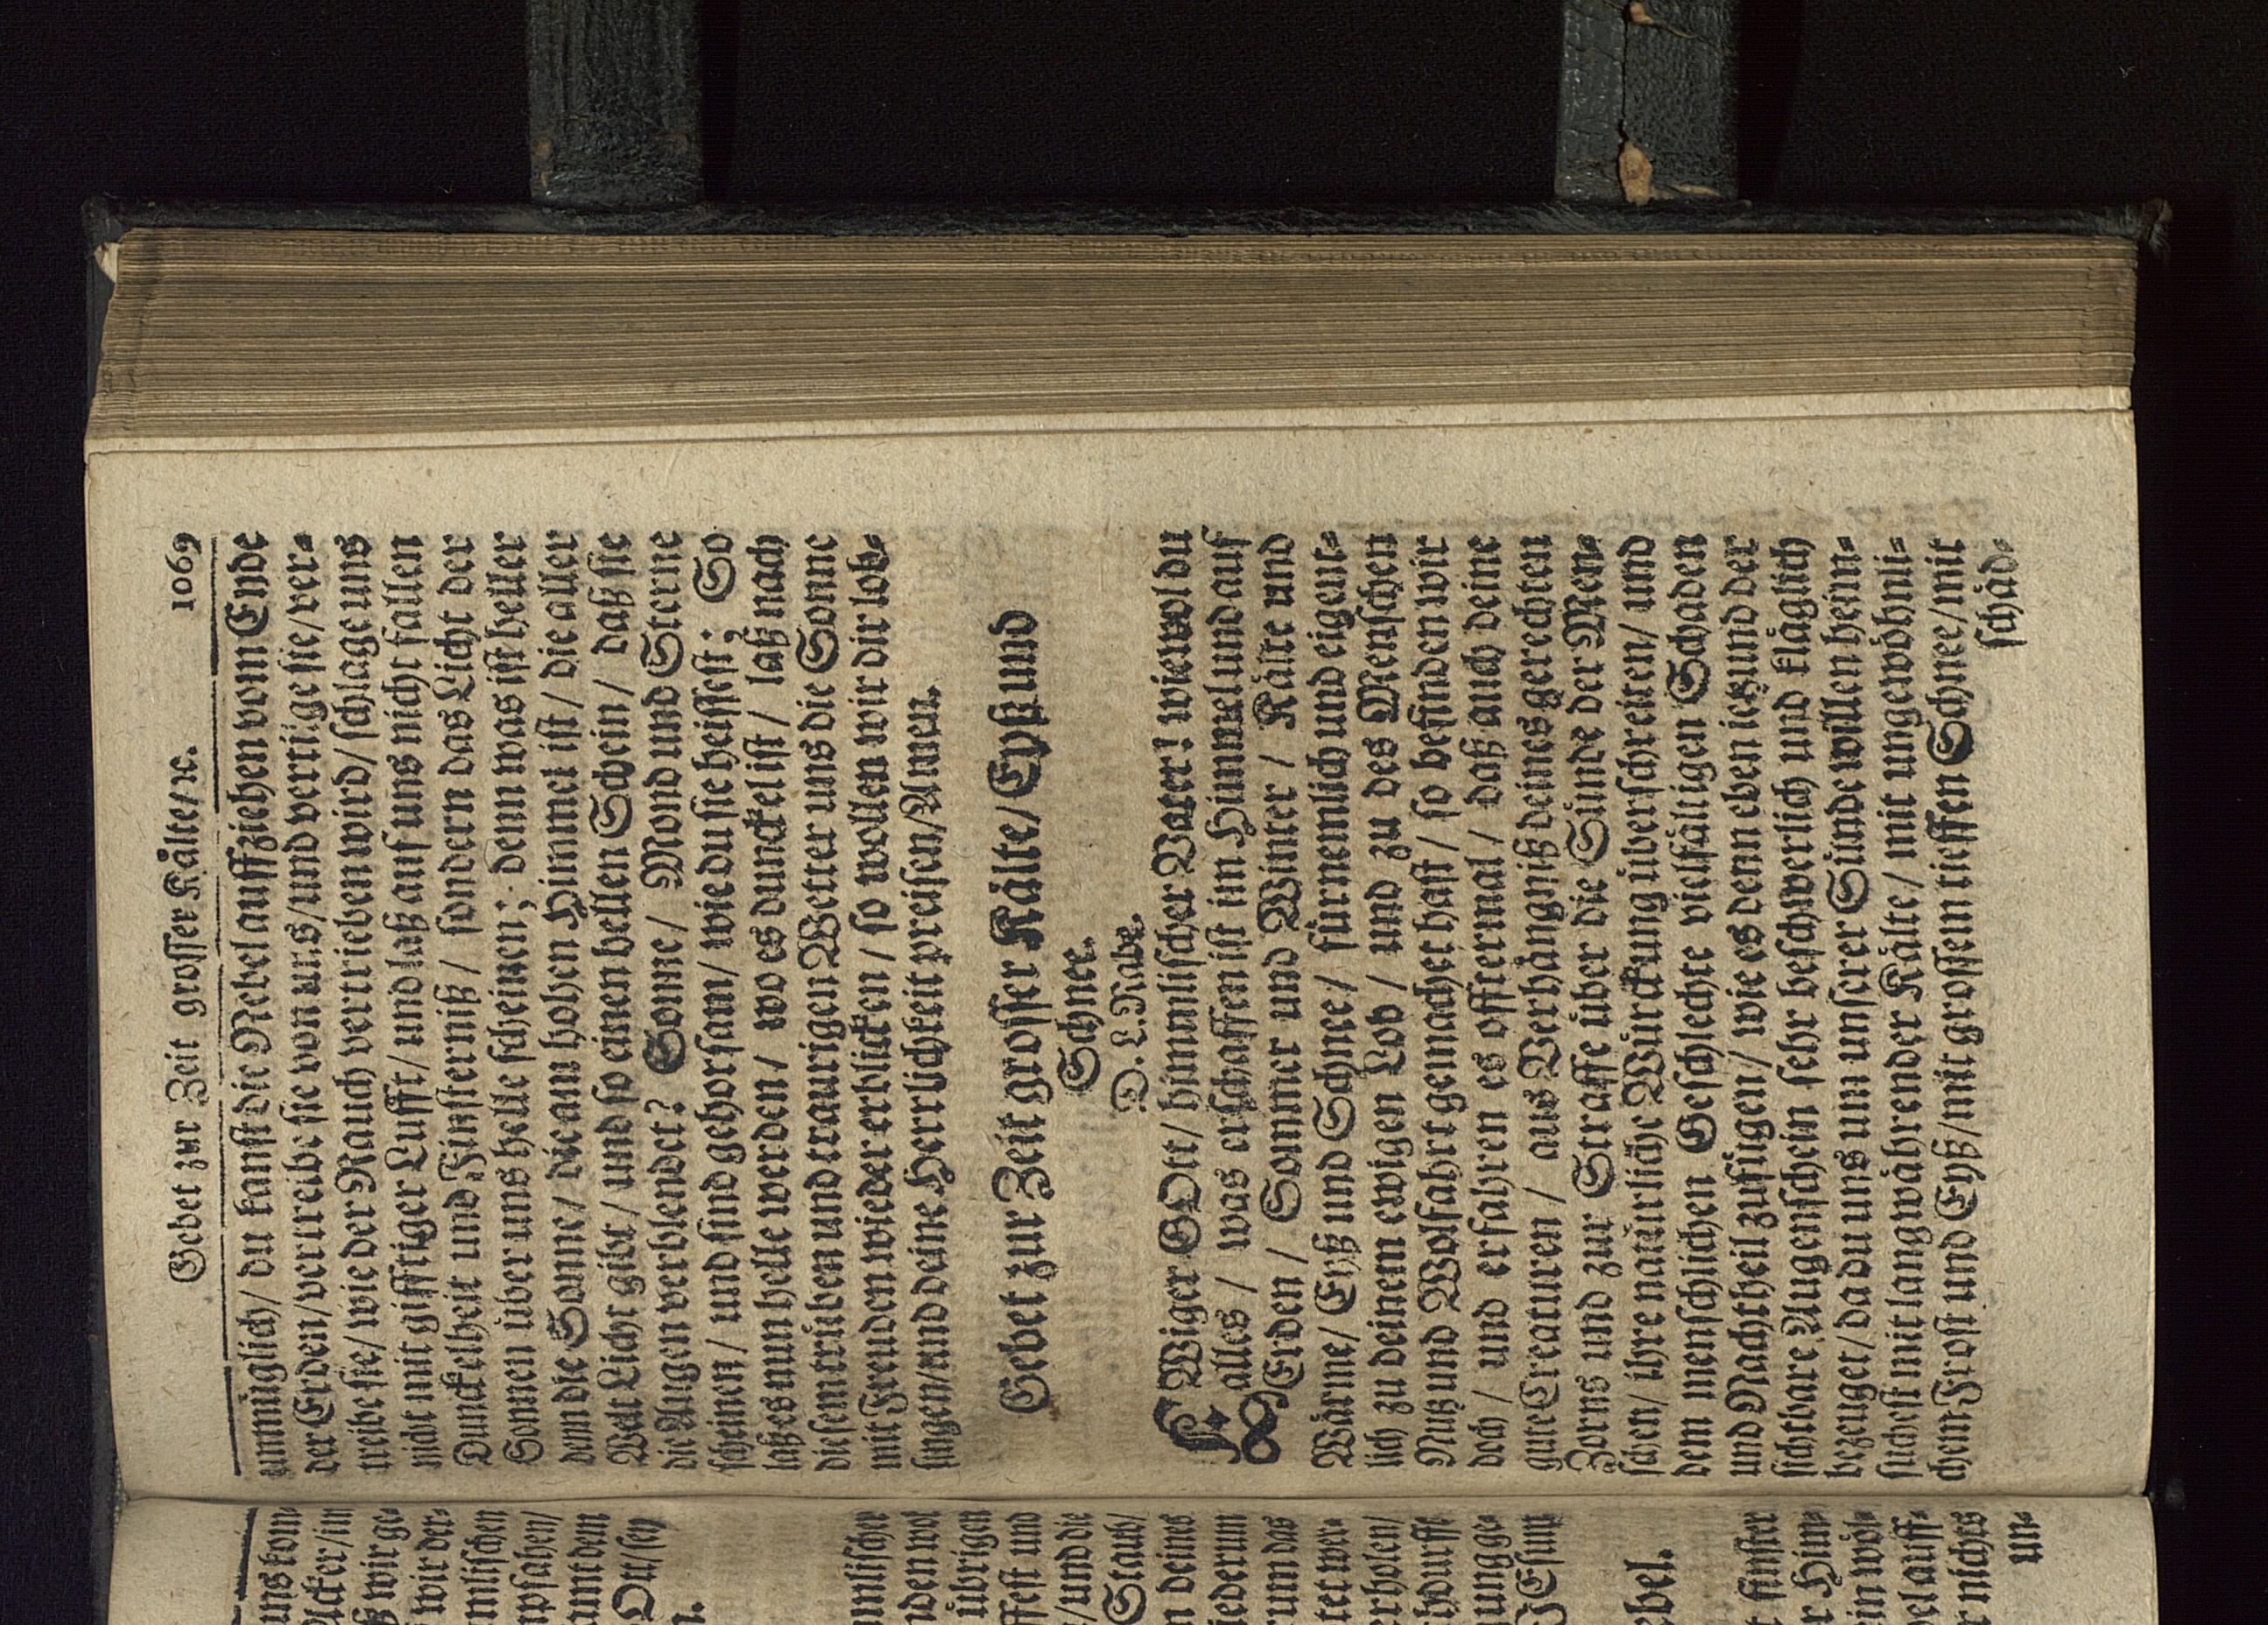 uns kom-
Acker/im
ß wir ge-
wir der-
mlischen
npfahen/
amt dem
Ott/sey
n.
mmlische
nden wol
übrigen
ffest und
/und die
Staub/
n deines
iederum
rum das
tet wer-
erholen/
hdurfft
nung ge-
JEsum
ebel.
t finster
r Him-
ein wöl-
bel auff-
r nichts
un-
Gebet zur Zeit grosser Kålte/ꝛc. 1069
unmüglich/ du kanst die Nebel auffziehen vom Ende
der Erden/vertreibe sie von uns/und vertige sie/ver-
treibe sie/ wie der Rauch vertrieben wird/ schlage uns
nicht mit gifftiger Lufft/ und laß auf uns nicht fallen
Dunckelheit und Finsterniß / sondern das Licht der
Sonnen über uns helle scheinen; denn was ist heller
denn die Sonne/ die am hohen Himmel ist / die aller
Welt Licht gibt/ und so einen hellen Schein / daß sie
die Augen verblendet? Sonne/ Mond und Sterne
scheinen/ und sind gehorsam/ wie du sie heissest; So
laß es nun helle werden/ wo es dunckel ist / laß nach
diesem trüben und traurigen Wetter uns die Sonne
mit Freuden wieder erblicken / so wollen wir dir lob-
singen/und deine Herrlichkeit preisen/Amen.
Gebet zur Zeit grosser Kålte/ Eyß und
Schnee.
D. L. Rabe.
EWiger GOtt/ himmlischer Vater! wiewol du
alles / was erschaffen ist im Himmel und auf
Erden / Sommer und Winter / Kålte und
Wårme/ Eyß und Schnee/ fürnemlich und eigent-
lich zu deinem ewigen Lob / und zu des Menschen
Nutz und Wolfahrt gemachet hast / so befinden wir
doch / und erfahren es offtermal / daß auch deine
gute Creaturen / aus Verhångniß deines gerechten
Zorns und zur Straffe über die Sünde der Men-
schen/ ihre natürliche Würckung überschreiten/ und
dem menschlichen Geschlechte vielfåltigen Schaden
und Nachtheil zufügen/ wie es denn eben ietzund der
sichtbare Augenschein sehr beschwerlich und klåglich
bezeuget/ da du uns um unserer Sünde willen heim-
suchest mit langwåhrender Kålte/ mit ungewöhnli-
chem Frost und Eyß/mit grossem tieffen Schnee/mit
schåd-